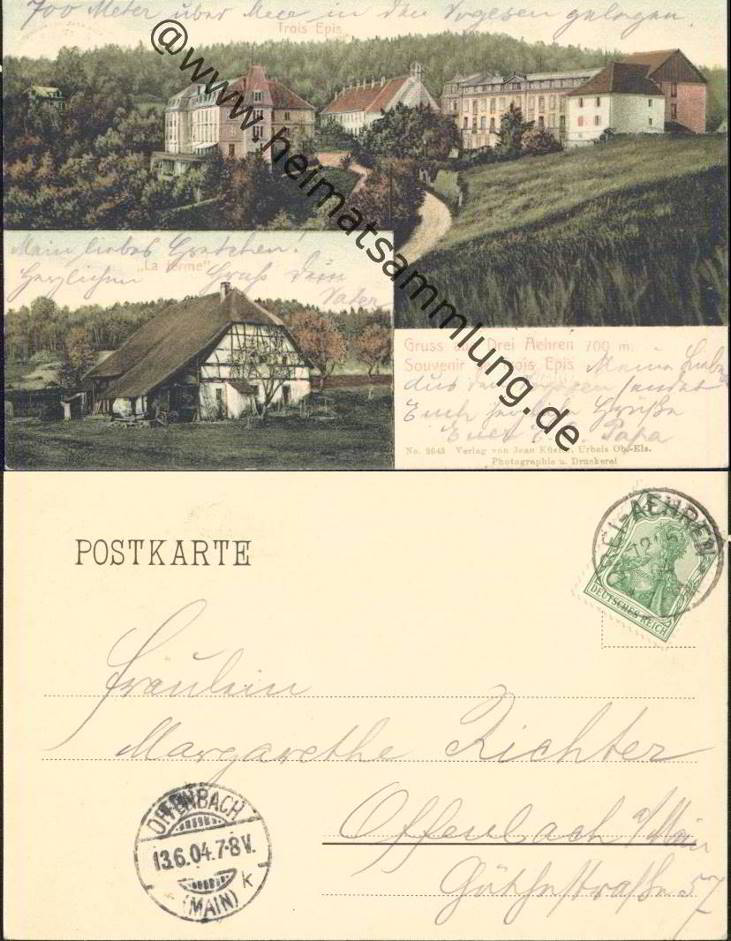 700 Meter über Meer in den Vogesen gelegen.
Trois Epis
@www.heimatsammlung.de
Mein liebes Gretchen!
„La ferme"
Herzlichen Gruss Dein
Vater
Gruss aus Drei Aehren 700 m.
Souvenir de Trois Epis
Meine Liebe
aus den Vogesen sendet
Euch herzliche Grüße
Euer Papa
No. 2643 Verlag von Jean Urbeis Ob.-Els.
Photographie u. Druckerei
POSTKARTE
DREI-AEHREN
DEUTSCHES REICH
Fräulein
Margarethe Richter
Offenbach a/Main
Göthestraße 57
OFFENBACH
13.6.04.7-8V.
(MAIN) K